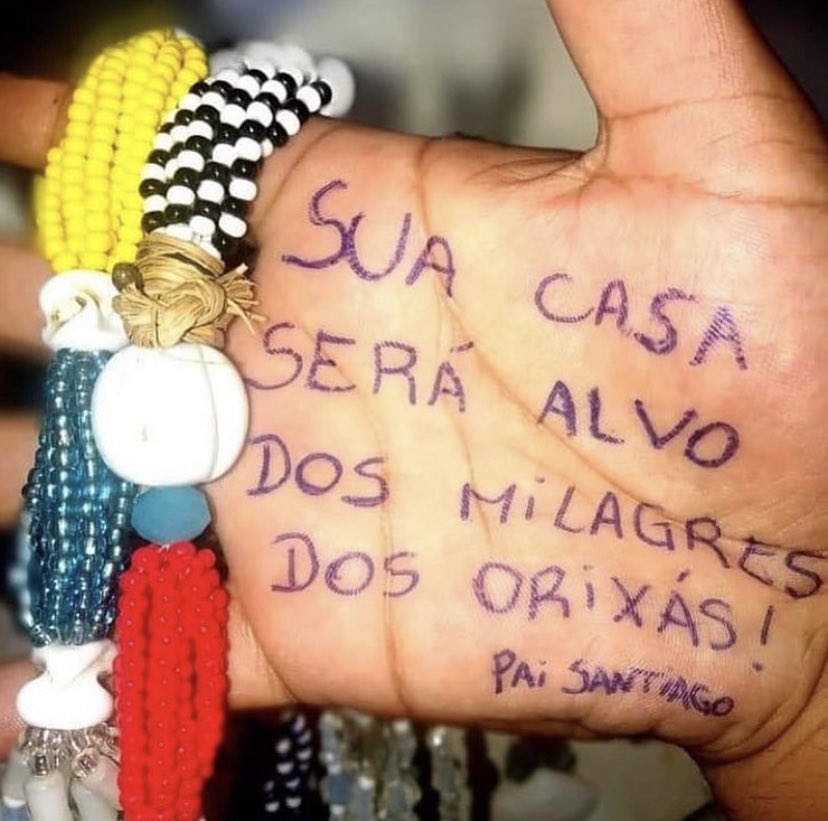 SUA CASA
SERÁ ALVO
DOS MiLAGRES
DOS ORiXÁS!
PAi SANTIAGO